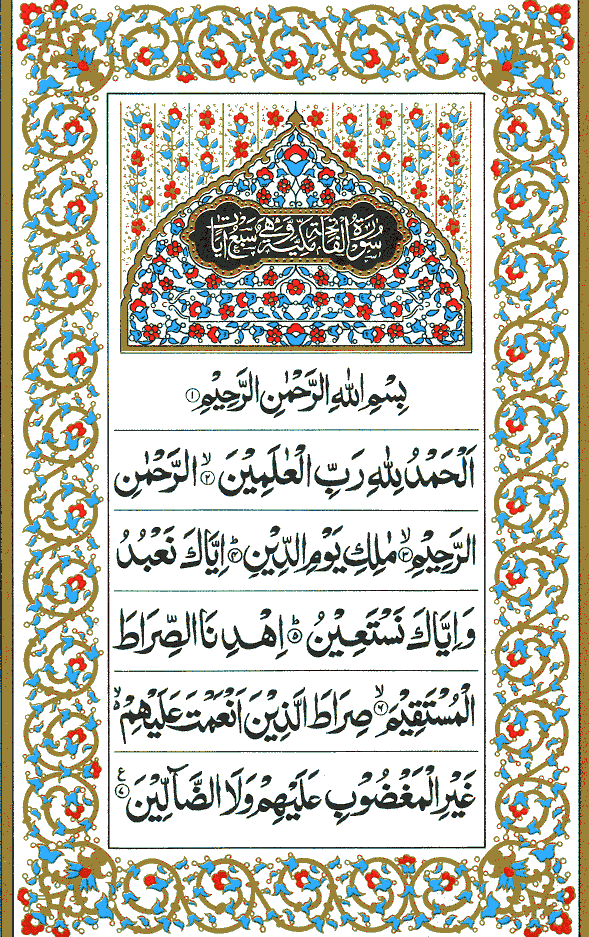 سُوْرَةُ الْفَاتِحَةِ مَكِّيَّةٌ وَّهِيَ سَبْعُ اٰيَاتٍ
بِسْمِ اللّٰهِ الرَّحْمٰنِ الرَّحِيْمِ ۝۱
اَلْحَمْدُ لِلّٰهِ رَبِّ الْعٰلَمِيْنَ ۙ۝۲ الرَّحْمٰنِ
الرَّحِيْمِ ۙ۝۳ مٰلِكِ يَوْمِ الدِّيْنِ ؕ۝۴ اِيَّاكَ نَعْبُدُ
وَ اِيَّاكَ نَسْتَعِيْنُ ؕ۝۵ اِهْدِنَا الصِّرَاطَ
الْمُسْتَقِيْمَ ۙ۝۶ صِرَاطَ الَّذِيْنَ اَنْعَمْتَ عَلَيْهِمْ ۙ۬ۦ
غَيْرِ الْمَغْضُوْبِ عَلَيْهِمْ وَلَا الضَّآلِّيْنَ ۝۷ ع